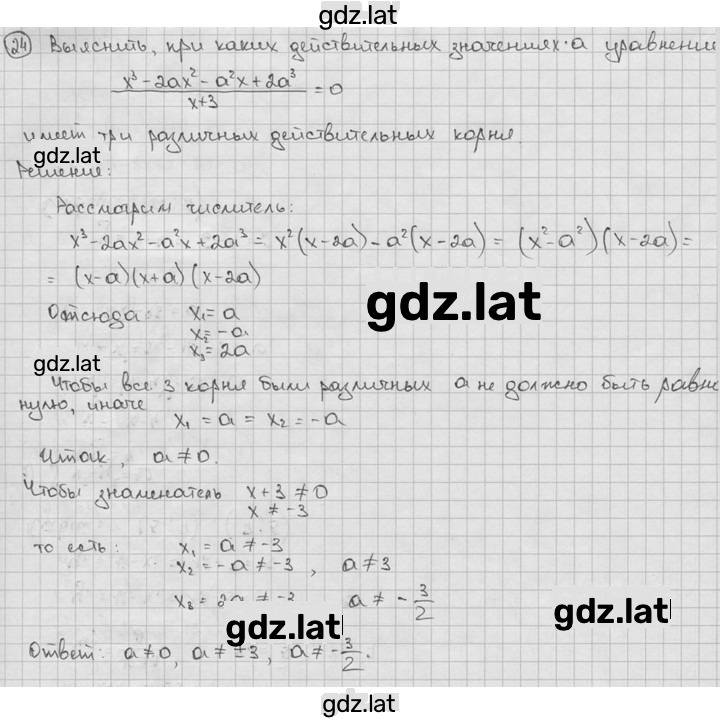 gdz.lat
24 Выяснить, при каких действительных значениях а уравнение
x³ - 2ax² - a²x + 2a³
x+3
= 0
имеет три различных действительных корня.
gdz.lat
Решение:
Рассмотрим числитель:
x³ - 2ax² - a²x + 2a³ = x²(x-2a) - a²(x-2a) = (x²-a²)(x-2a) =
= (x-a)(x+a)(x-2a)
gdz.lat
Отсюда: x₁ = a
x₂ = -a
x₃ = 2a
gdz.lat
Чтобы все 3 корня были различных а не должно быть равно
нулю, иначе
x₁ = a = x₂ = -a
Итак, a ≠ 0.
Чтобы знаменатель x + 3 ≠ 0
x ≠ -3
то есть: x₁ = a ≠ -3
x₂ = -a ≠ -3, a ≠ 3
x₃ = 2a ≠ -3 a ≠ -3/2
gdz.lat
gdz.lat
Ответ: a ≠ 0, a ≠ ±3, a ≠ -3/2.
gdz.lat